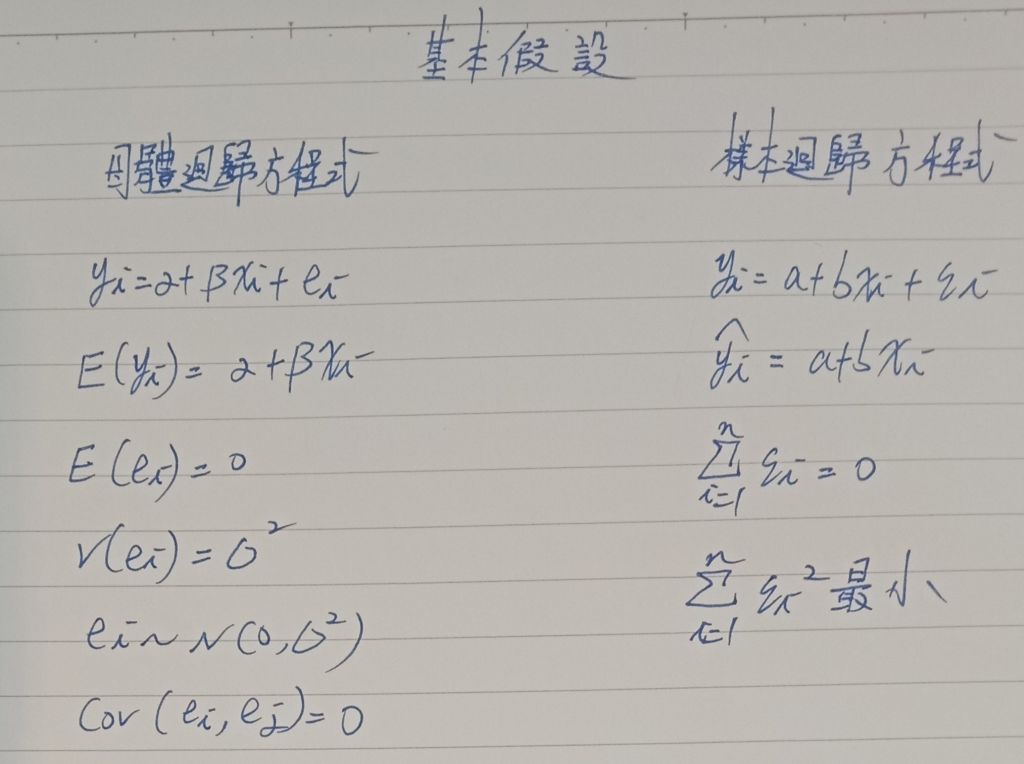 基本假設
母體迴歸方程式
yᵢ=α+βxᵢ+eᵢ
E(yᵢ)=α+βxᵢ
E(eᵢ)=0
V(eᵢ)=σ²
eᵢ~N(0,σ²)
Cov(eᵢ,eⱼ)=0
樣本迴歸方程式
yᵢ=a+bxᵢ+εᵢ
ŷᵢ=a+bxᵢ
∑ⁿᵢ₌₁ εᵢ=0
∑ⁿᵢ₌₁ εᵢ²最小